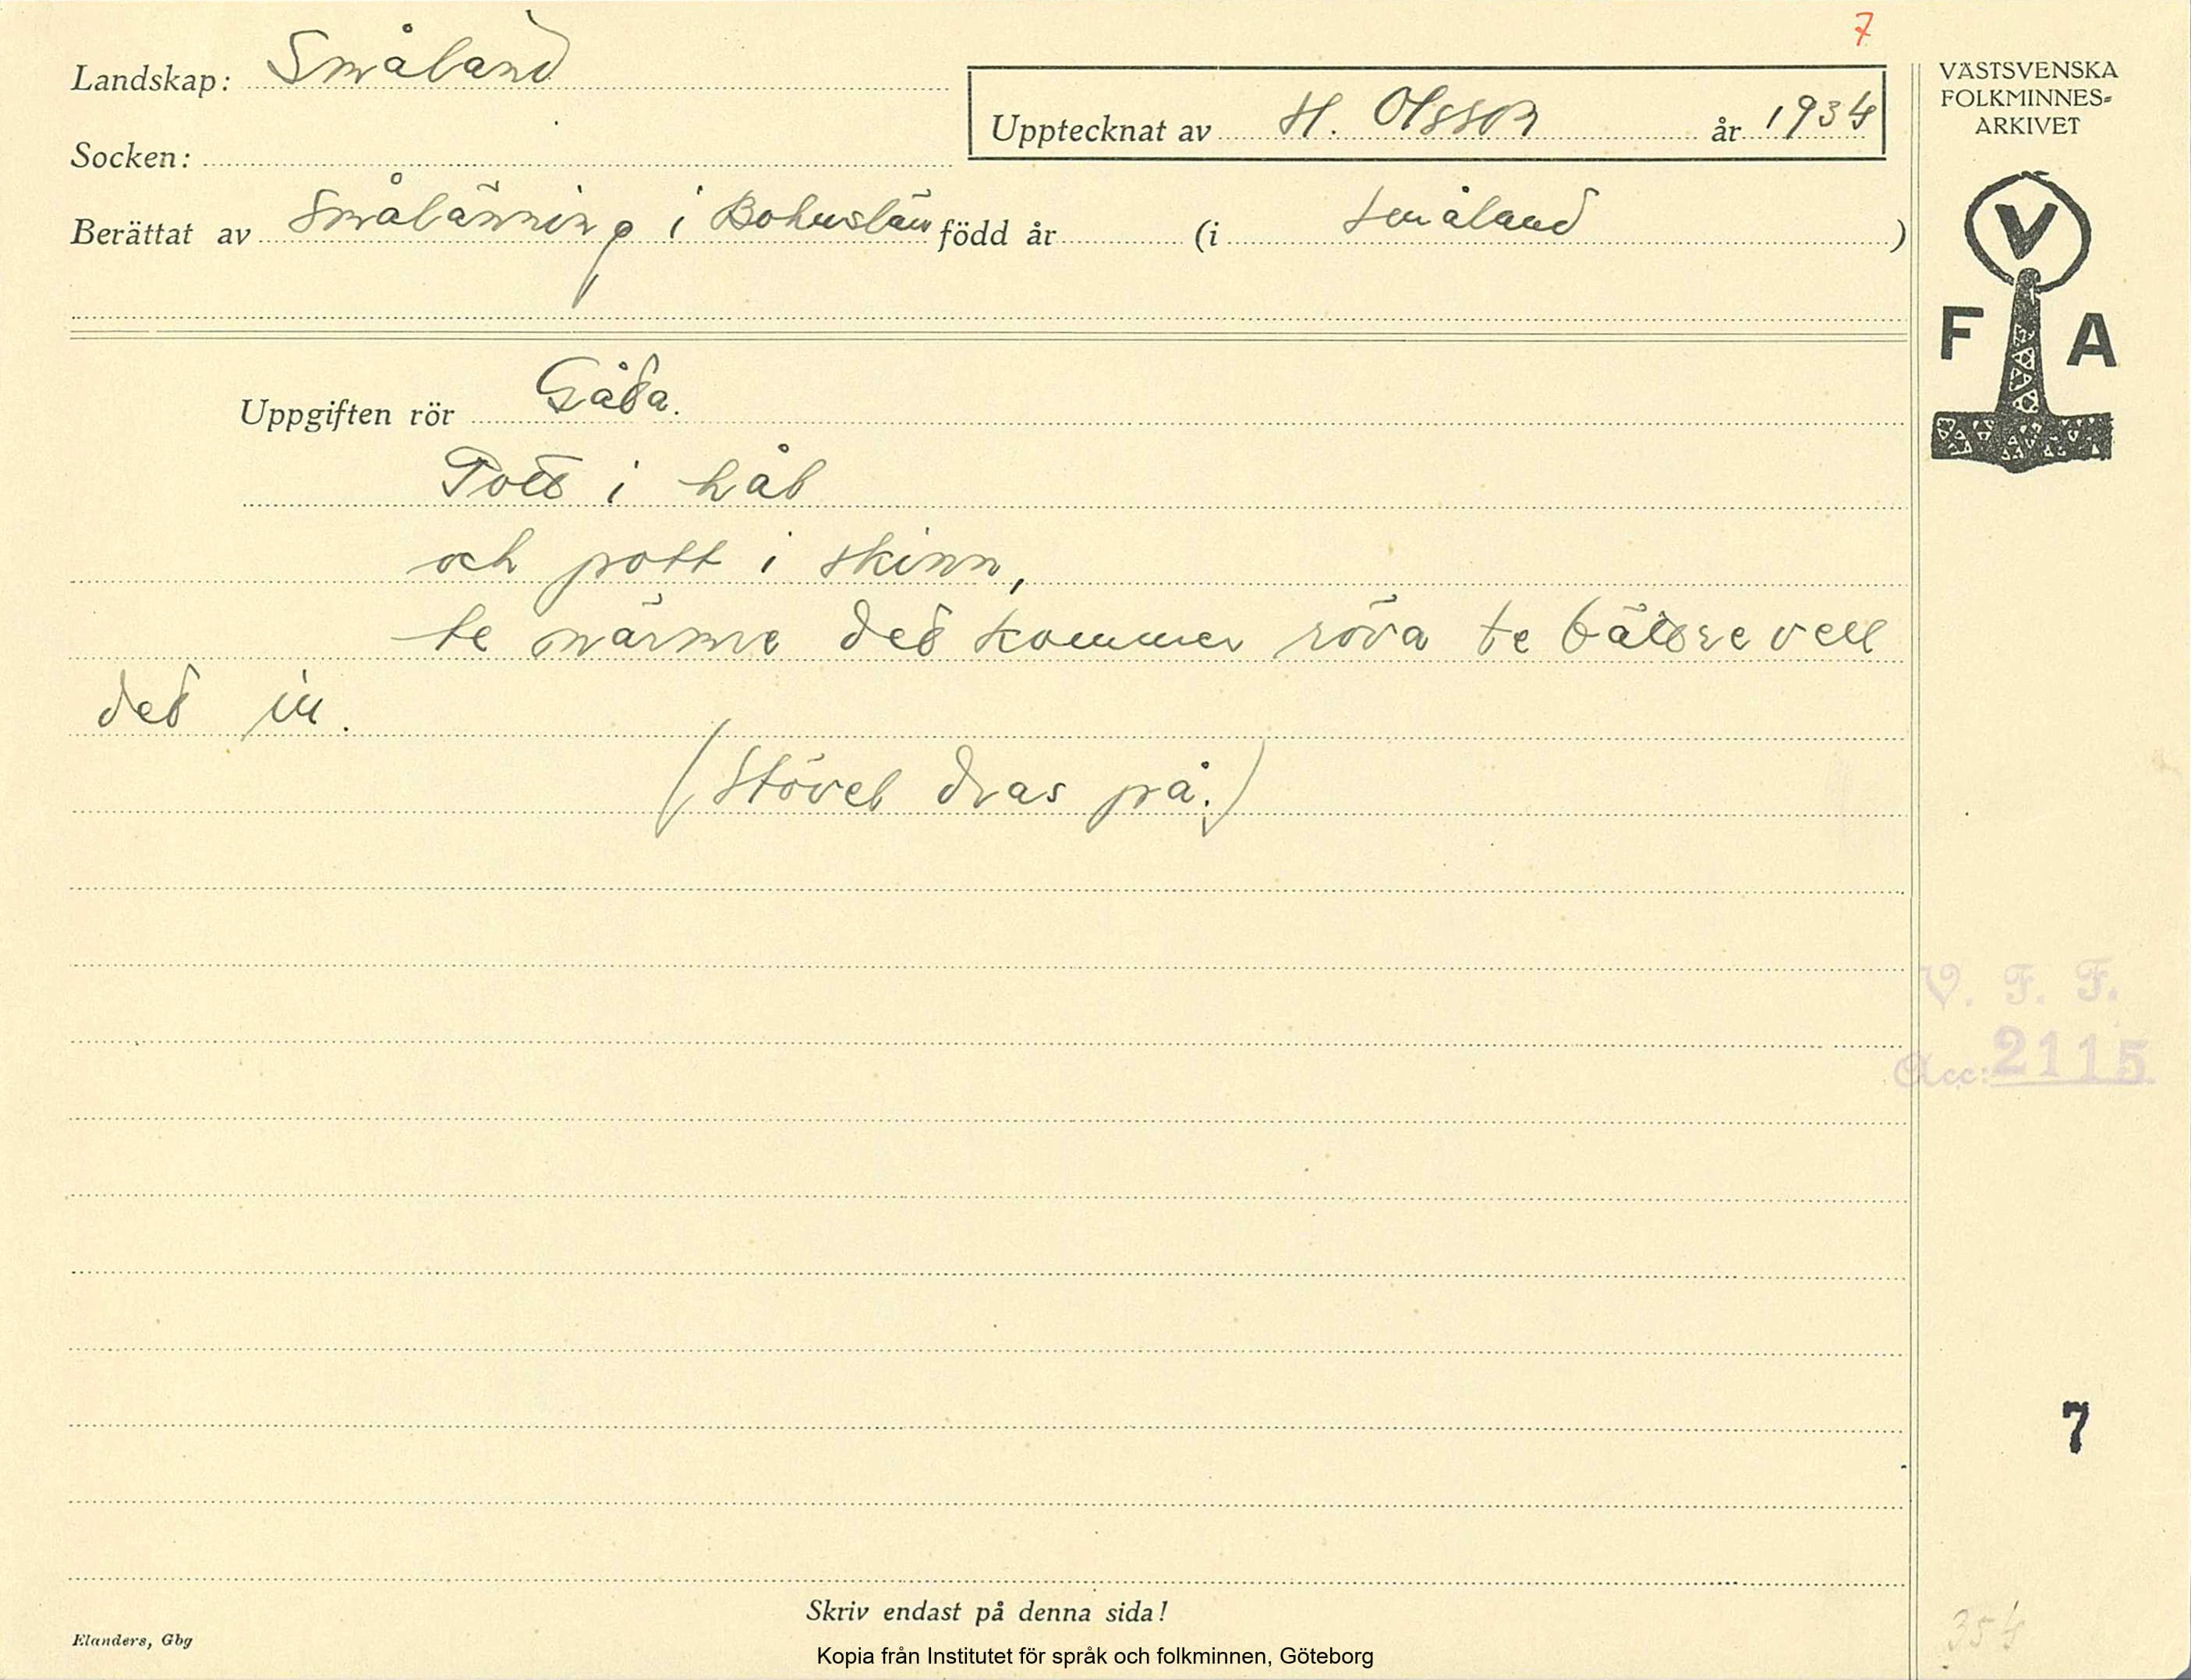 7
Landskap: Småland
Upptecknat av H. Olsson år 1934
Socken:
Berättat av Smålänning i Bohuslän född år (i Småland)
VÄSTSVENSKA
FOLKMINNES-
ARKIVET
V
F A
Uppgiften rör Gåta.
Pott i hål
och pott i skinn,
te närmre det kommer röva te bättre vell
det in.
(Stövel dras på.)
V. F. F.
Acc: 2115
7
354
Skriv endast på denna sida!
Elanders, Gbg
Kopia från Institutet för språk och folkminnen, Göteborg